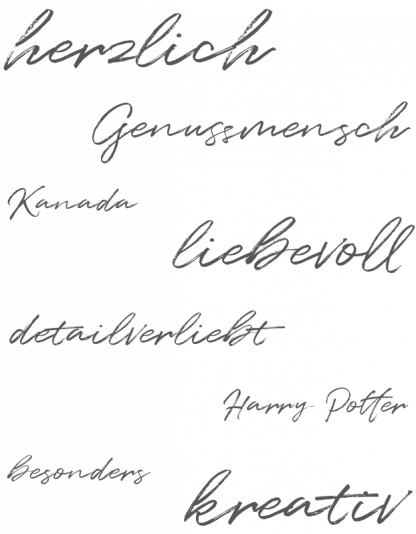 herzlich
Genussmensch
Kanada
liebevoll
detailverliebt
Harry Potter
besonders
kreativ